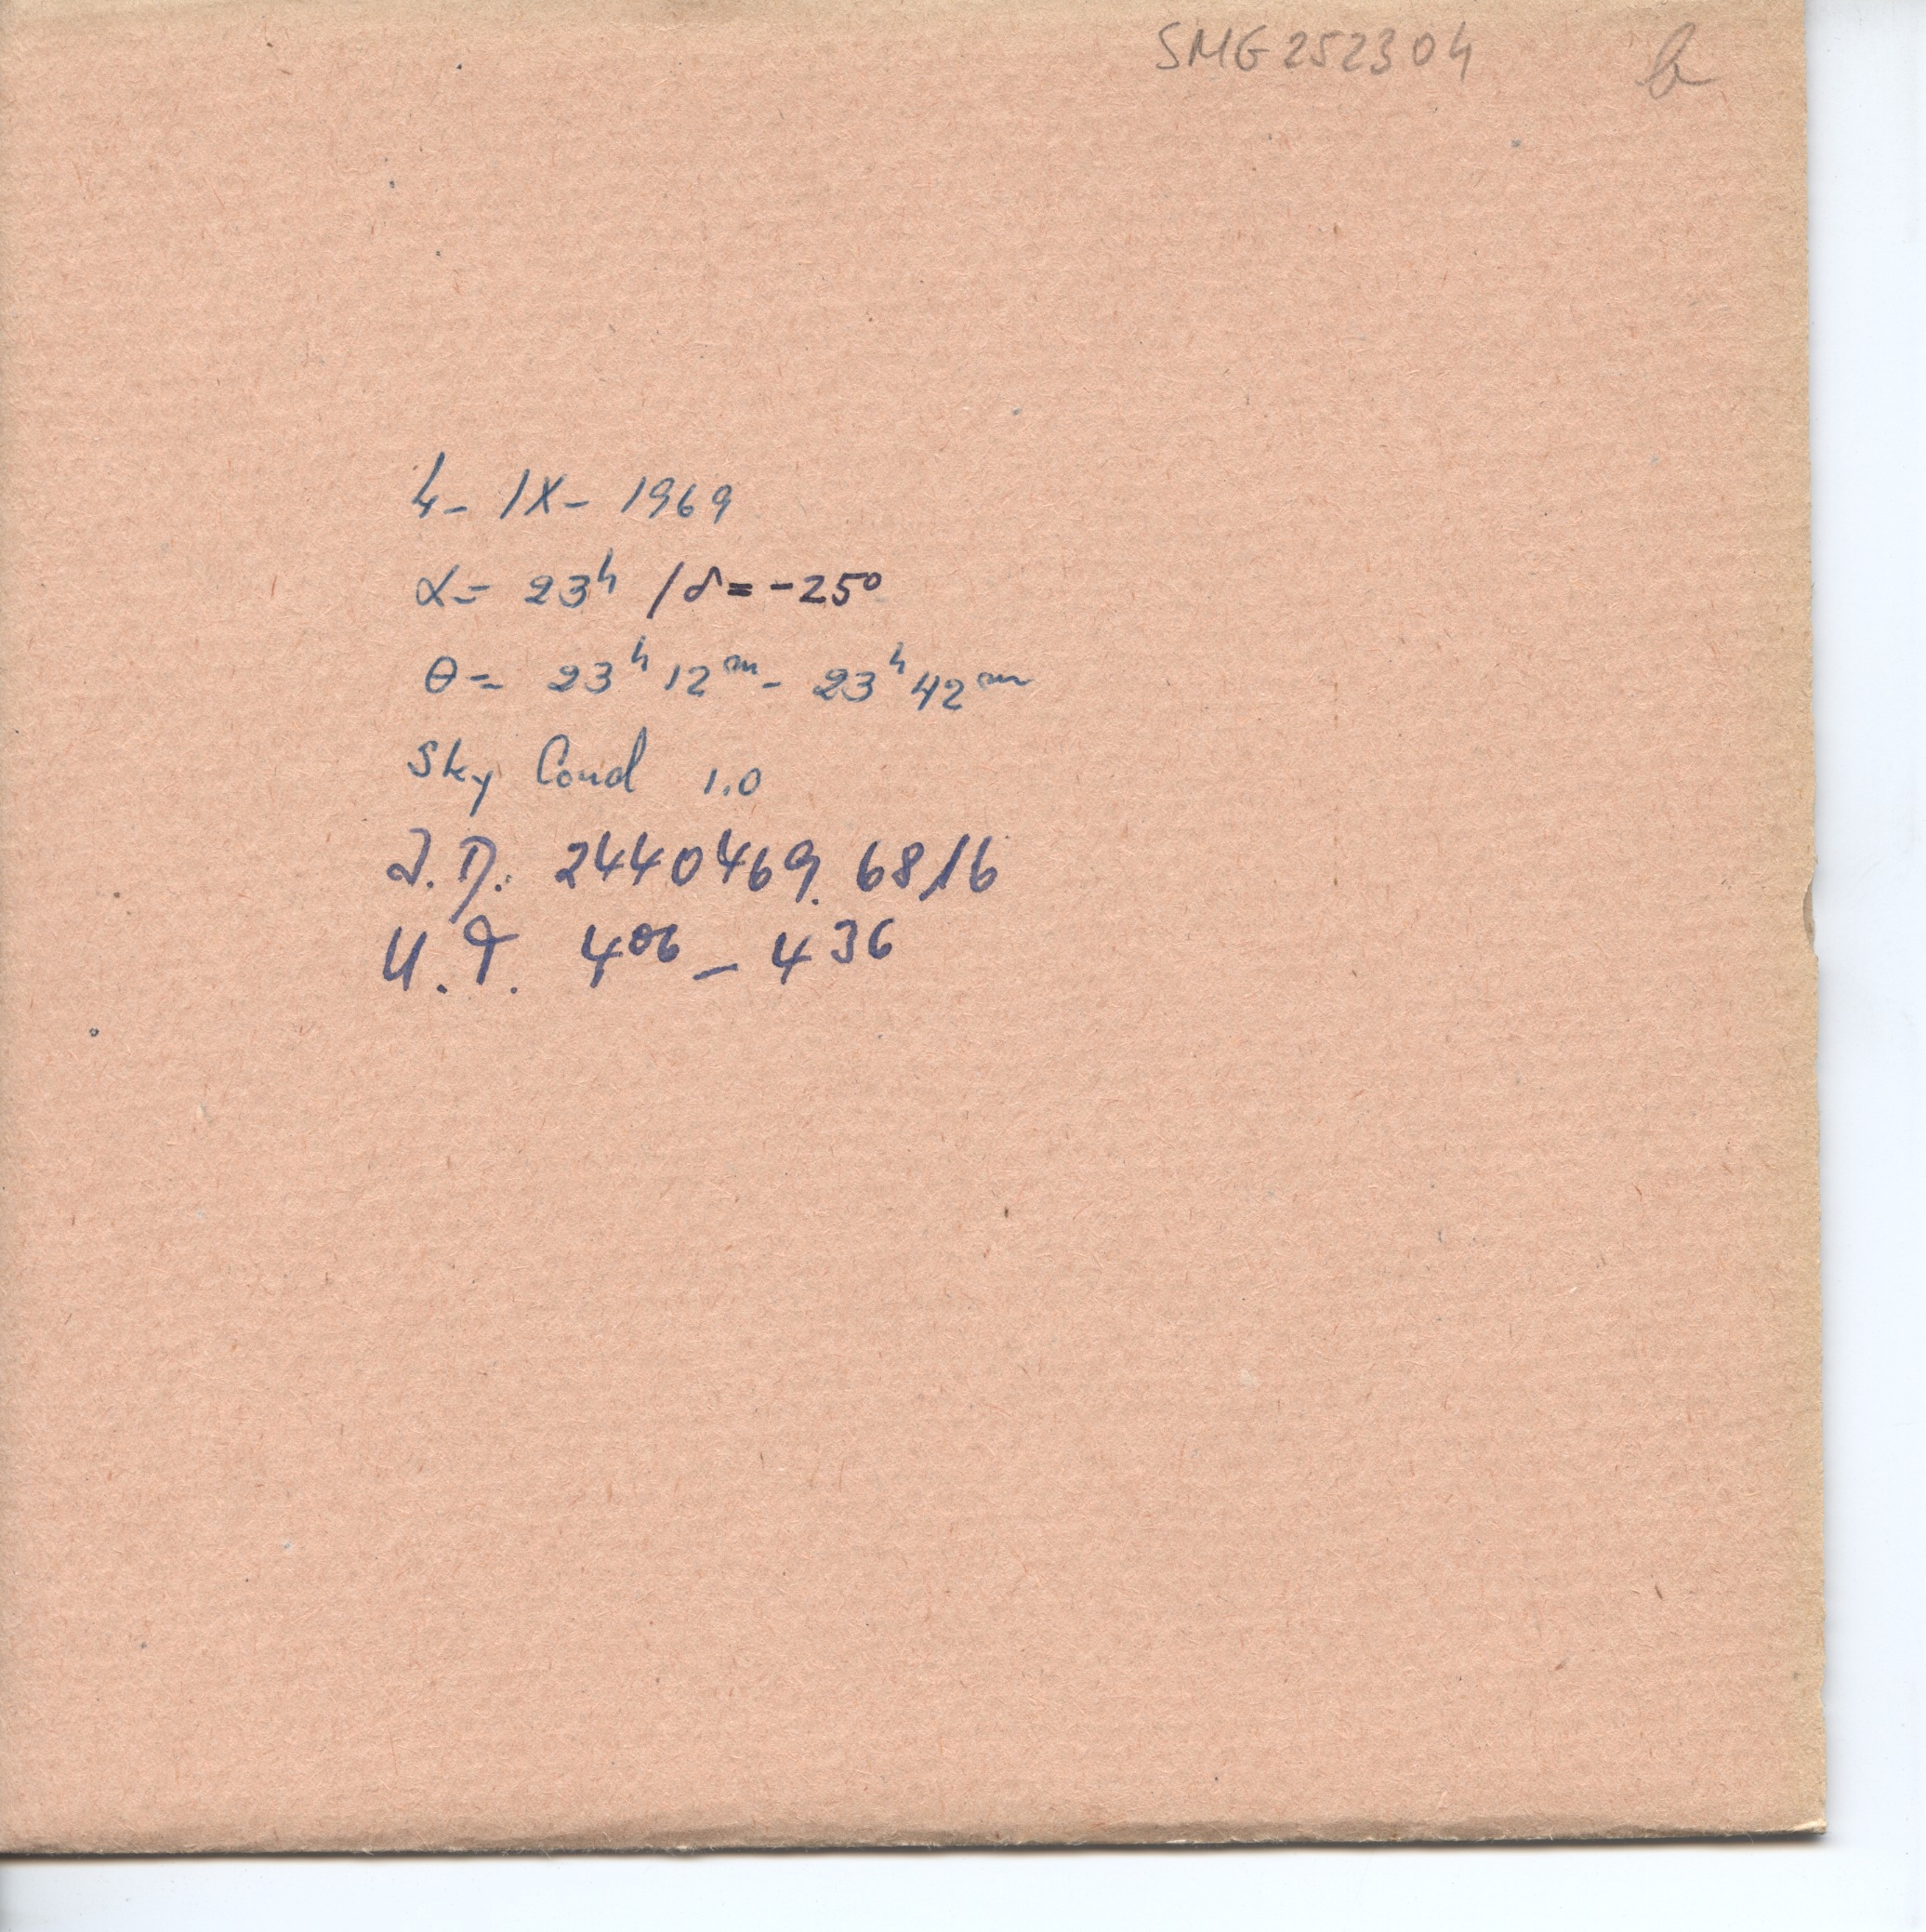 SMG 252304 b
4- IX- 1969
α= 23ʰ / δ= -25°
θ= 23ʰ 12ᵐ - 23ʰ 42ᵐ
Sky Cond 1.0
J.D. 2440469.6816
U.T. 4⁰⁶ - 4³⁶